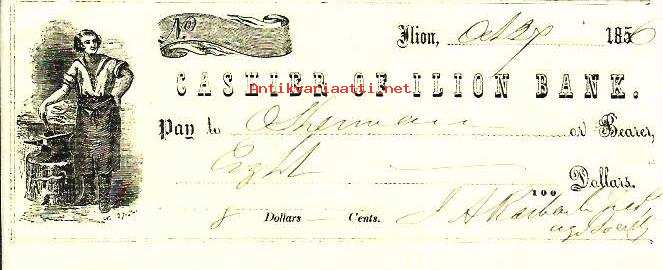 No.
Ilion, Oct 3 1856
CASHIER OF ILION BANK.
Antikvariaatti.net
Pay to Sherman or Bearer,
Eight
100 Dollars.
8 Dollars Cents.
J A